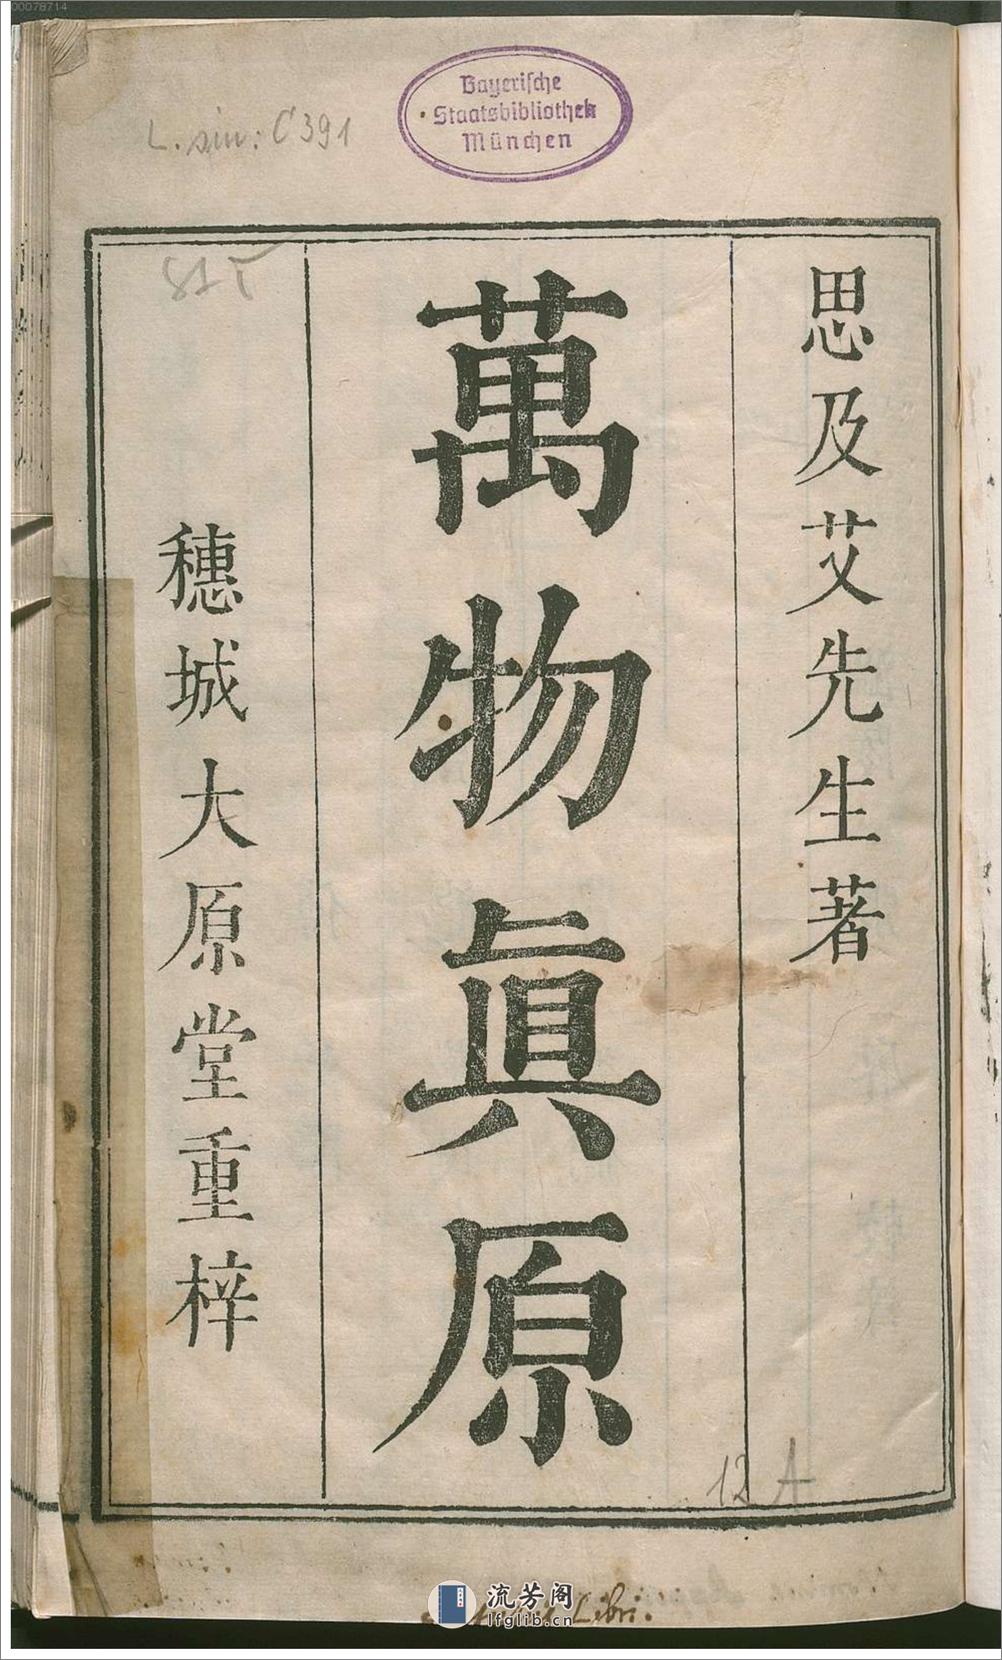 00078714
Bayerische
Staatsbibliothek
München
L. sin: C 391
思及艾先生著
萬物眞原
穗城大原堂重梓
12 A
Libri.
流芳阁
lfglib.cn